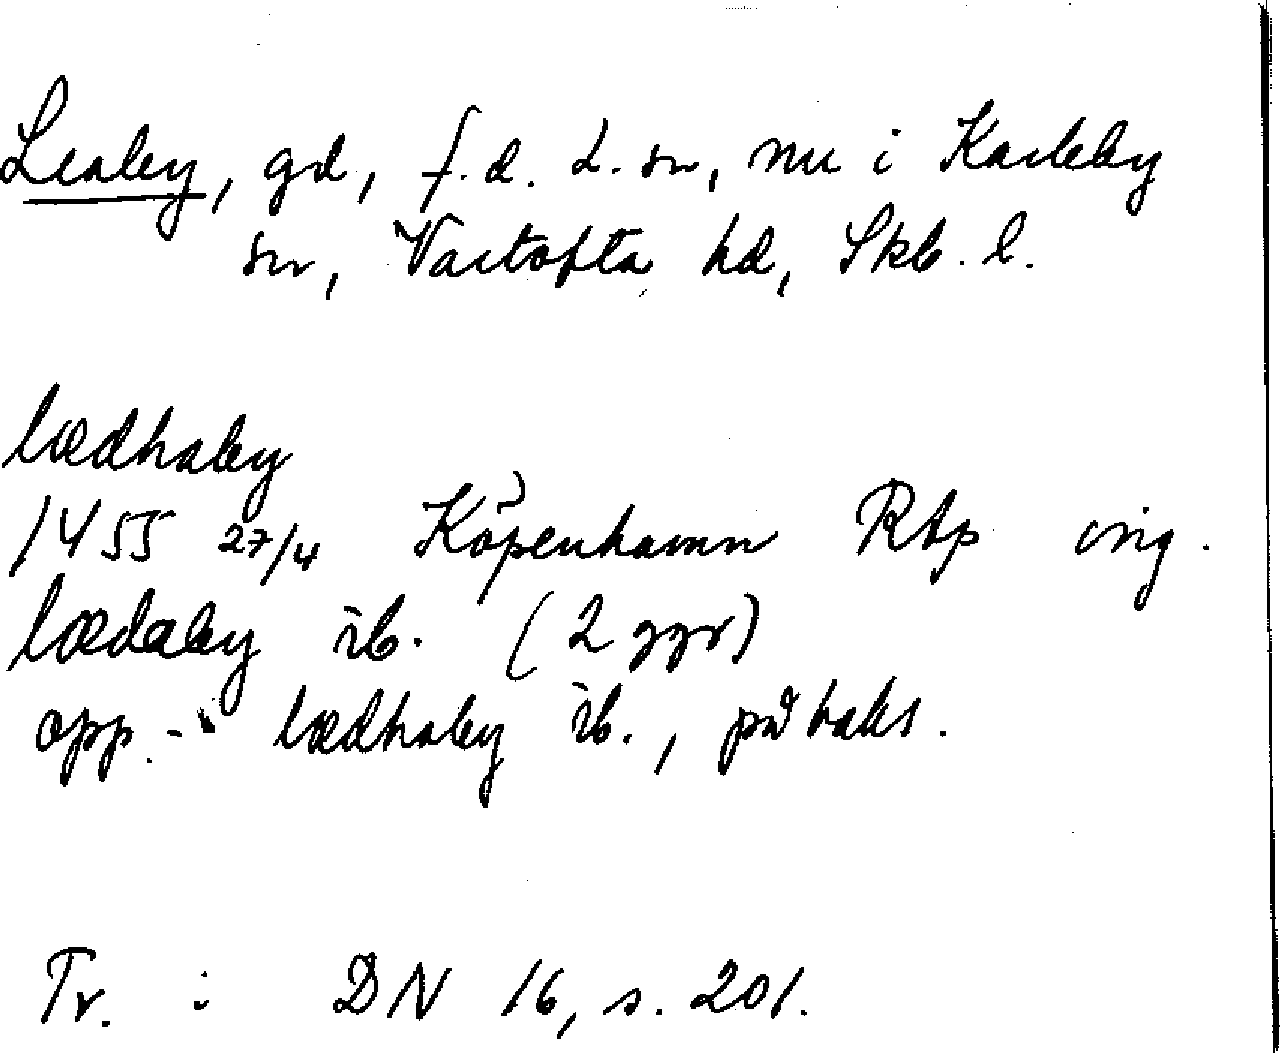 Leaby, gd, f.d. L. sn, nu i Karleby
sn, Vartofta hd, Skb. l.
lædhaby
1455 27/4 Köpenhamn Rtp orig.
lædaby ib. (2 ggr)
opp. - lædhaby ib., på baks.
Tr. i DN 16, s. 201.